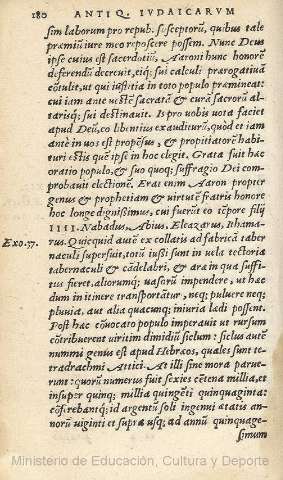 180 ANTIQ. IVDAICARVM
sim laborum pro repub. susceptorũ, quibus tale
præmiũ iure meo reposcere possem. Nunc Deus
ipse cuius est sacerdotiũ, Aaroni hunc honorẽ
deferendũ decreuit, eiq; sui calculi prærogatiuã
cõtulit, ut qui iustitia in toto populo præmineat:
cui iam ante uestẽ sacratã & curã sacrorũ al-
tarisq; sui destinauit. Is pro uobis uota faciet
apud Deũ, eo libentius exauditurũ, quòd et iam
ante in uos est propẽsus, & propitiatorẽ habi-
turi estis quẽ ipse in hoc elegit. Grata fuit hæc
oratio populo, & suo quoq; suffragio Dei com-
probauit electionẽ. Erat enim Aaron propter
genus & prophetiam & uirtutẽ fratris honore
hoc longe dignissimus, cui fuerũt eo tẽpore filij
IIII. Nabadus, Abius, Eleazarus, Ithama-
Exo. 37. rus. Quicquid autẽ ex collatis ad fabricã taber
naculi superfuit, totũ iussi sunt in uela tectoria
tabernaculi & cãdelabri, & aræ in qua suffi-
tus fieret, aliorumq; uasorũ impendere, ut hæc
dum in itinere transportãtur, neq; puluere neq;
pluuia, aut alia quacumq; iniuria lædi possent.
Post hæc cõuocato populo imperauit ut rursum
cõtribuerent uiritim dimidiũ siclum: siclus autẽ
nummi genus est apud Hebræos, quales sunt te-
tradrachmi Attici. At illi sine mora parue-
runt: quorũ numerus fuit sexies cẽtena millia, et
insuper quinq; millia quingẽti quinquaginta:
cõferebantq; id argentũ soli ingenui ætatis an-
norũ uiginti et supra usq; ad annũ quinquage-
simum
Ministerio de Educación, Cultura y Deporte